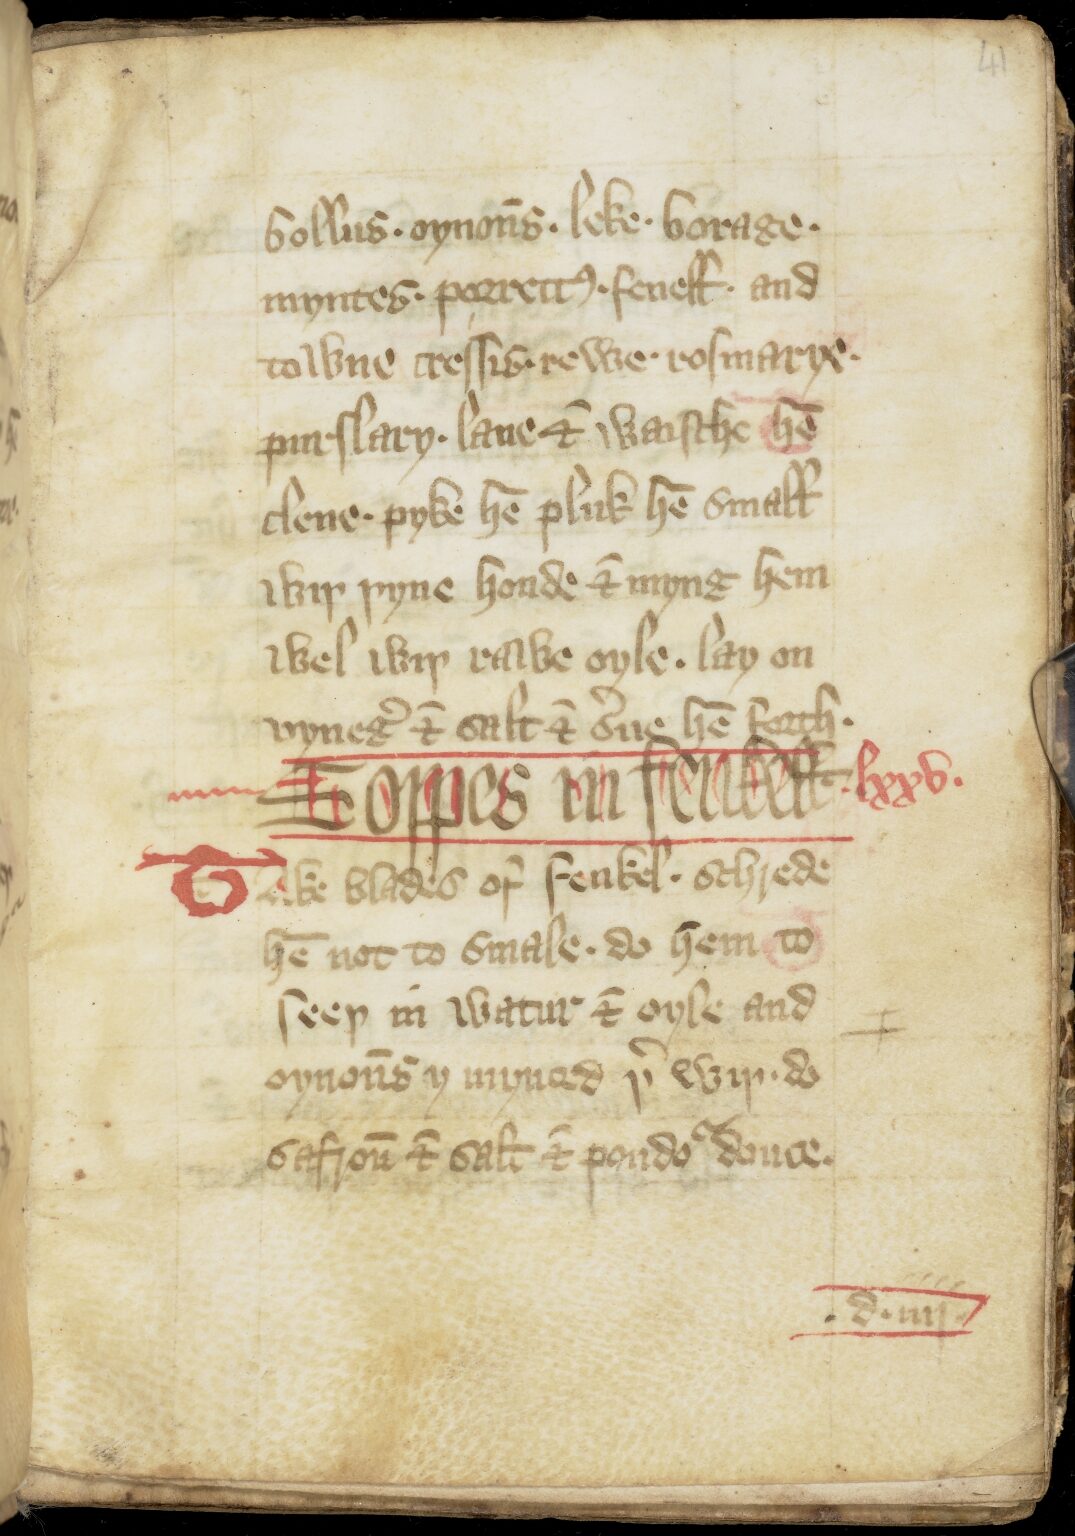 41
bollus · oynoūs · leke · borage ·
myntes · porrettꝰ · feneƚƚ · and
towne cressis · rewe · rosmarye ·
purslary · laue ⁊ waische hē
clene · pyke hē pluk hē smaƚƚ
wiþ þyne honde ⁊ myng hem
wel wiþ rawe oyle · lay on
vyneg͛ ⁊ salt ⁊ s͛ue hē forth ·
Soppes in fenkeƚƚ · lxxv ·
Take blades of fenkel · schrede
hē not to smale · do hem to
seeþ in watur ⁊ oyle and
oynoūs y mynced þ͛ wiþ · do
safroū ⁊ salt ⁊ poudoᷣ douce ·
· d · iiij ·